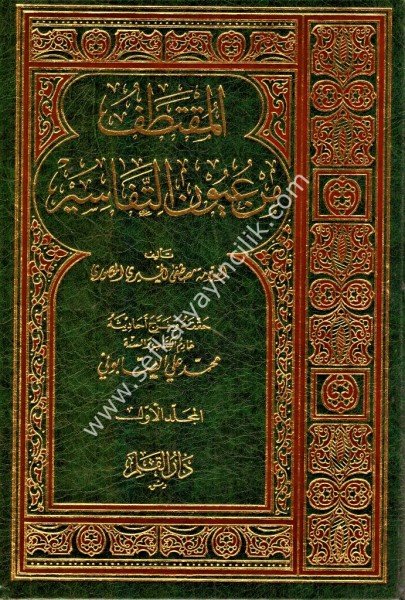 المقتطف
من عيون التفاسير
تأليف
مصطفى الخيري المنصوري
حققه وخرج أحاديثه
خادم الكتاب والسنة
محمد علي الصابوني
المجلد الأول
دار القلم
دمشق
www.serhatyayincilik.com